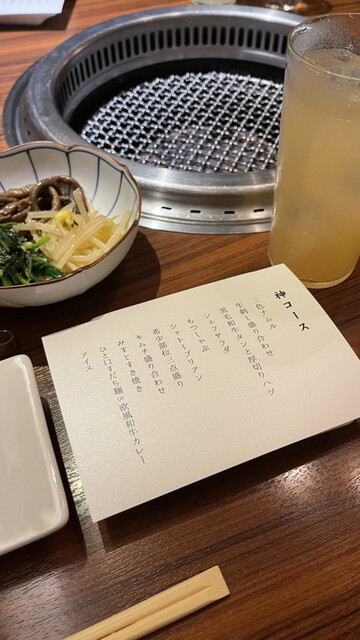 神コース
三色ナムル
牛刺し盛り合わせ
黒毛和牛タンと厚切りハツ
シェフサラダ
もつしゃぶ
シャトーブリアン
希少部位三点盛り
キムチ盛り合わせ
みすじすき焼き
ひと口すだち麺or欧風和牛カレー
アイス